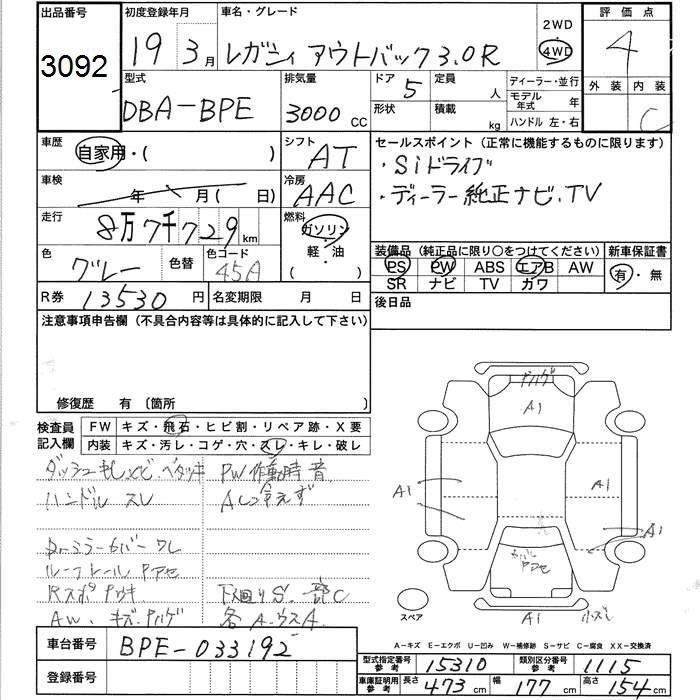 出品番号
3092
初度登録年月
19 3月
車名・グレード
レガシィ アウトバック3.0R
2WD
4WD
評価点
4
外装 内装
C
型式
DBA-BPE
排気量
3000 CC
ドア 5
形状
定員 人
積載 kg
ディーラー・並行
モデル年式 年
ハンドル 左・右
車歴
自家用・( )
シフト
AT
セールスポイント(正常に機能するものに限ります)
・Siドライブ
・ディーラー純正ナビ、TV
車検
年 月( 日)
冷房
AAC
走行
8万7千729km
燃料
ガソリン
軽・油
( )
色
グレー
色替
色コード
45A
装備品(純正品に限り○をつけてください)
PS PW ABS エアB AW
SR ナビ TV カワ
新車保証書
有・無
R券 13530円
名変期限 月 日
後日品
注意事項申告欄(不具合内容等は具体的に記入して下さい)
修復歴 有〔箇所 〕
検査員記入欄
FW キズ・飛石・ヒビ割・リペア跡・X要
内装 キズ・汚レ・コゲ・穴・スレ・キレ・破レ
PW作動時音
ハンドル スレ
AC冷えず
ミラーカバーワレ
ルーフレール
下廻りS.一部C
AW、キズ、ハゲ
A1
A1
A1
A1
A1
スペア
小キズ
A-キズ E-エクボ U-凹み W-補修跡 S-サビ C-腐食 XX-交換済
車台番号
BPE-033192
登録番号
型式指定番号 参考
15310
類別区分番号 参考
1115
車庫証明用 参考
長さ 473cm
幅 177cm
高さ 154cm